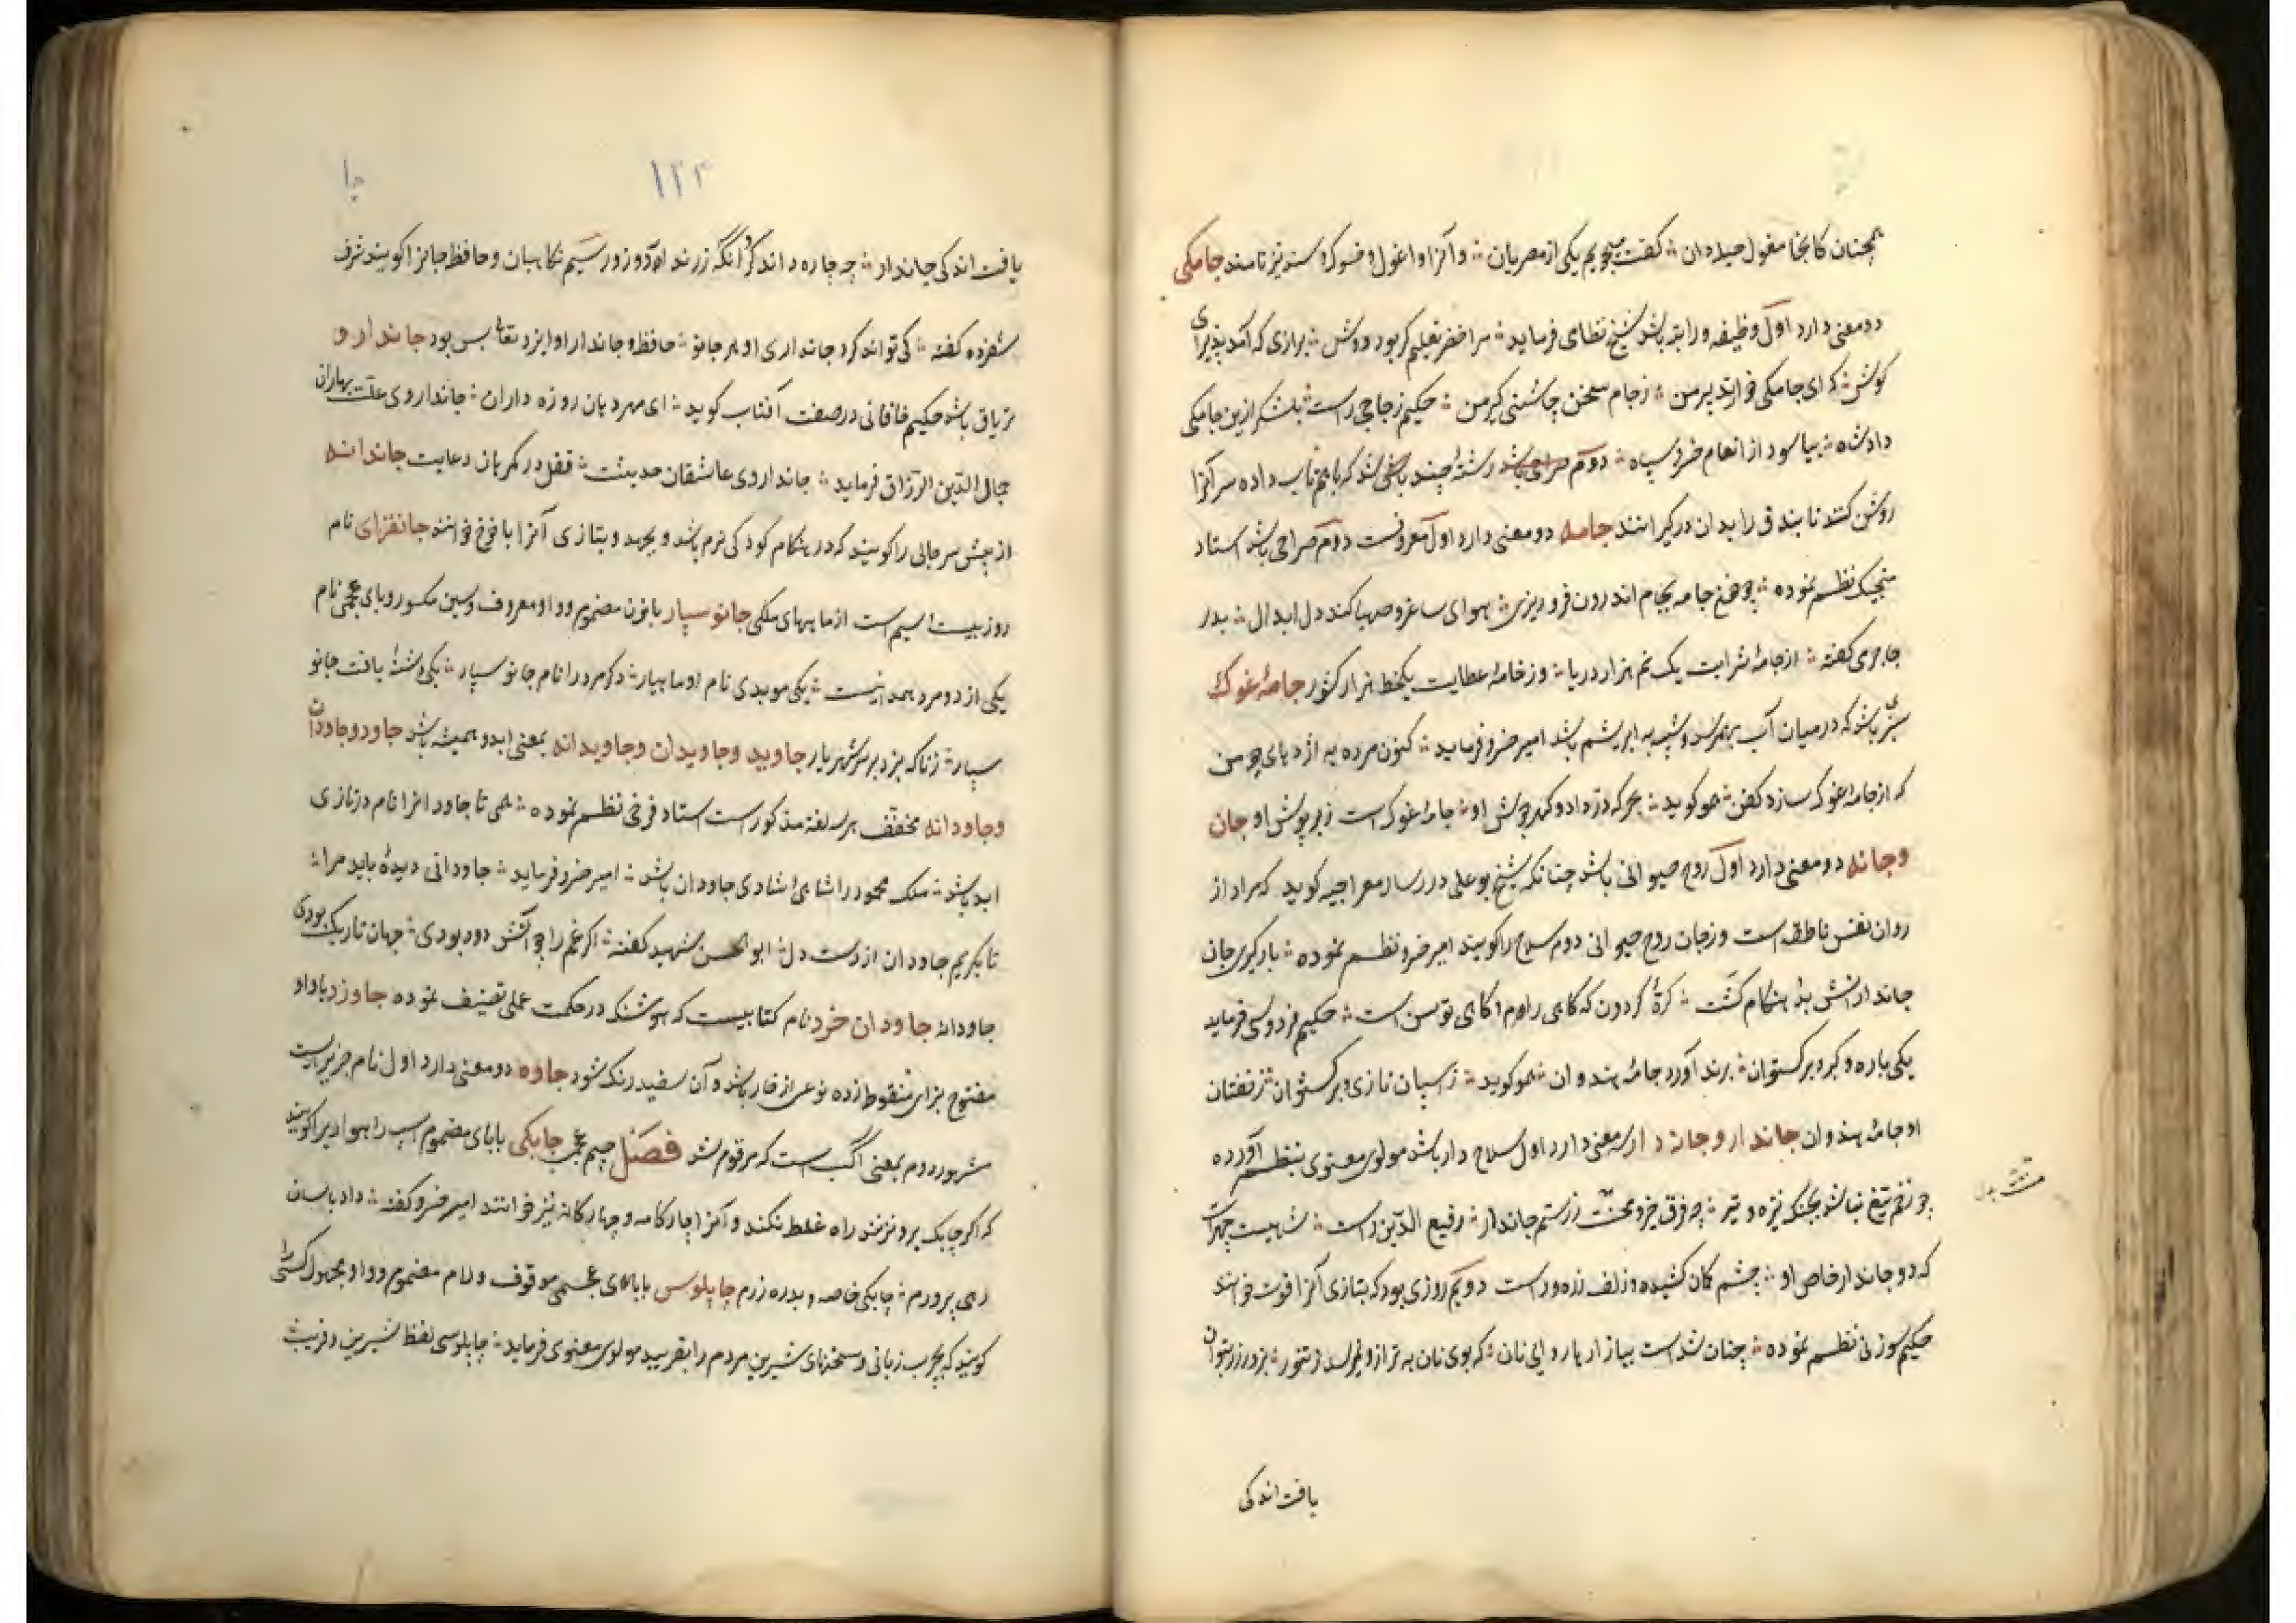 همچنان کانجا مغول حیله دان ⁘ گفت میجویم یکی از مصریان ⁘ و آنرا واغول و نیز نامند جامکی
دو معنی دارد اول وظیفه و راتبه باشد شیخ نظامی فرماید ⁘ مرا خضر تعلیم گر بود دوش ⁘ برازی که آمد پذیرای
گوش ⁘ که ای جامکی خوار تدبیر من ⁘ ز جام سخن چاشنی گیر من ⁘ حکیم زجاجی راست ⁘ بلشکر ازین جامکی
داد شاه ⁘ بیاسود از انعام خسرو سپاه ⁘ دوم رشتهٔ چند باشد که باهم تاب داده سر آنرا
روشن کنند تا بندق را بدان درگیرانند جامه دو معنی دارد اول معروفست دوم صراحی باشد استاد
منجیک نظم نموده ⁘ چو جامه بجام اندرون فرو ریزی ⁘ هوای ساغر و صهبا کند دل ابدال ⁘ بدر
جاجرمی گفته ⁘ از جامهٔ شرابت یک نم هزار دریا ⁘ وز خامهٔ عطایت یکخط هزار کشور جامهٔ غوک
سبزی باشد که در میان آب بهم رسد و شبیه به ابریشم باشد امیر خسرو فرماید ⁘ کنون مرده به اژدهای چو من
که از جامهٔ غوک سازد کفن ⁘ همو گوید ⁘ بحر که دزه داد و گهر جوش او ⁘ جامهٔ غوک است زبر پوش او جان
و جانه دو معنی دارد اول روح حیوانی باشد چنانکه شیخ بوعلی در رساله معراجیه گوید که مراد از
روان نفس ناطقه است و ز جان روح حیوانی دوم سلاح را گویند امیر خسرو نظم نموده ⁘ بارگیری جان
جاندارانش بد هنگام گشت ⁘ کرهٔ گردون که گاهی رام و گاهی توسن است ⁘ حکیم فردوسی فرماید
یکی باره و گبر و برگستوان ⁘ برند آورد جامهٔ هندوان ⁘ همو گوید ⁘ ز اسپان تازی و برگستوان ⁘ ز خفتان
و جامهٔ هندوان جاندار و جانه دار سه معنی دارد اول سلاح دار باشد مولوی معنوی بنظم آورده
چو زخم تیغ نباشد بجنگ نیزه و تیر ⁘ چه فرق حیز و مخنث ز رستم جاندار ⁘ رفیع الدین راست ⁘ شهیست چهرات
که دو جاندار خاص او ⁘ چشم کمان کشیده و زلف زره ور است دویم روزی بود که بتازی آنرا قوت خوانند
حکیم سوزنی نظم نموده ⁘ چنان شد است ببازارها روائی نان ⁘ که بوی نان به ترازو نمیرسد ز تنور ⁘ بزور زر بتوان
یافت اندکی
۱۲۳
جا
یافت اندکی جاندار ⁘ چه چاره داند کرد آنکه زر ندارد و زور سیم نگاهبان و حافظ جانرا گویند شرف
شفروه گفته ⁘ کی تواند کرد جانداری او هر جانور ⁘ حافظ و جاندار او ایزد تعالی بس بود جاندارو
تریاق باشد حکیم خاقانی در صفت آفتاب گوید ⁘ ای مهر دهان روزه داران ⁘ جانداروی علت بهاران
جمال الدین عبد الرزاق فرماید ⁘ جانداروی عاشقان حدیثت ⁘ قفل در گمرهان رعایت جاندانه
از پیش سر جائی را گویند که در هنگام کودکی نرم باشد و بجهد و بتازی آنرا یافوخ خوانند جانفزای نام
روز بیست و سیم است از ماههای ملکی جانوسپار با نون مضموم و واو معروف و سین مکسور و بای عجمی نام
یکی از دو مرد همدانیست ⁘ یکی موبدی نام او ماهیار ⁘ دگر مرد را نام جانوسپار ⁘ یکی دشنهٔ یافت جانو
سپار ⁘ بزد بر بر شهریار جاوید و جاویدان و جاویدانه بمعنی ابد و همیشه باشد جاود و جاودان
و جاودانه مخفف هر سه لغت مذکور است استاد فرخی نظم نموده ⁘ همی تا جاود انرا نام در تازی
ابد باشد ⁘ ملک محمود را شاهی و شادی جاودان باشد ⁘ امیر خسرو فرماید ⁘ جاودانی دیدهٔ باید مرا ⁘
تا بگریم جاودان از دست دل ⁘ ابو الحسن شهید گفته ⁘ اگر غم را چو آتش دود بودی ⁘ جهان تاریک بودی
جاودانه جاودان خرد نام کتابیست که هوشنگ در حکمت عملی تصنیف نموده جاوزد با واو
مفتوح بزای منقوط زده نوعی از خار باشد و آن سفید رنگ شود جاوه دو معنی دارد اول نام جزیره ایست
مشهور دوم بمعنی اگب است که مرقوم شد فصل جیم عجمی چابکی با بای مضموم اسپ راهوار را گویند
که اگر چابک برو نزنند راه غلط نکند و آنرا چارگامه و چهارگانه نیز خوانند امیر خسرو گفته ⁘ داد باسان
رهی پرورم ⁘ چابکی خاصه و بدره زرم چاپلوس با بای عجمی موقوف و لام مضموم و واو مجهول کسی را
گویند که بچرب زبانی و سخنهای شیرین مردم را بفریبد مولوی معنوی فرماید ⁘ چاپلوسی لفظ شیرین و فریب